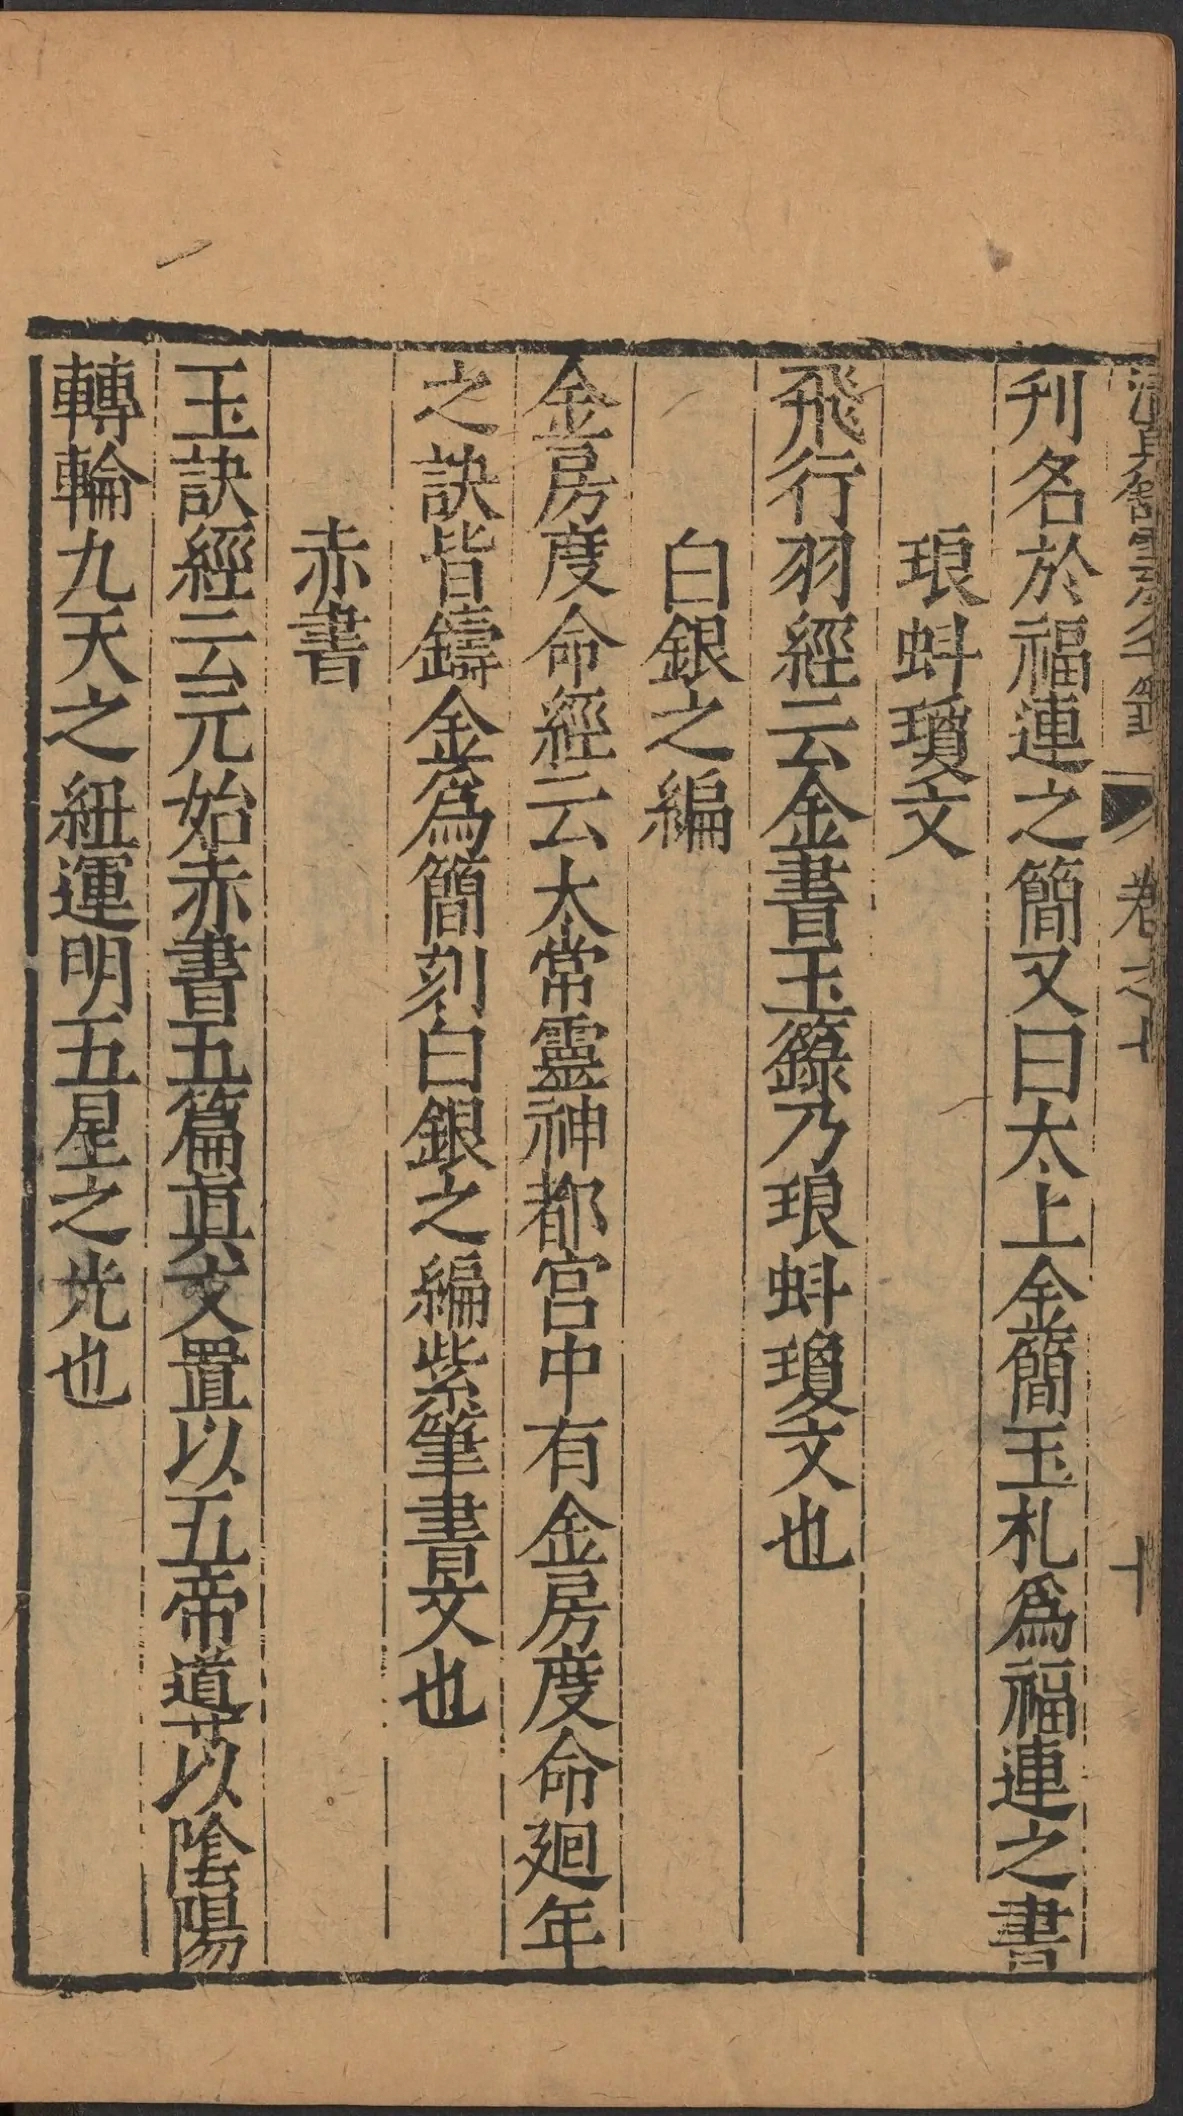 清真館雲笈七籤 卷之七 十
刋名於福連之簡又曰太上金簡玉札爲福連之書
琅蚪瓊文
飛行羽經云金書玉籙乃琅蚪瓊文也
白銀之編
金房度命經云太常靈神都宮中有金房度命廻年
之訣皆鑄金爲簡刻白銀之編紫筆書文也
赤書
玉訣經云元始赤書五篇眞文置以五帝道以陰陽
轉輪九天之紐運明五星之光也